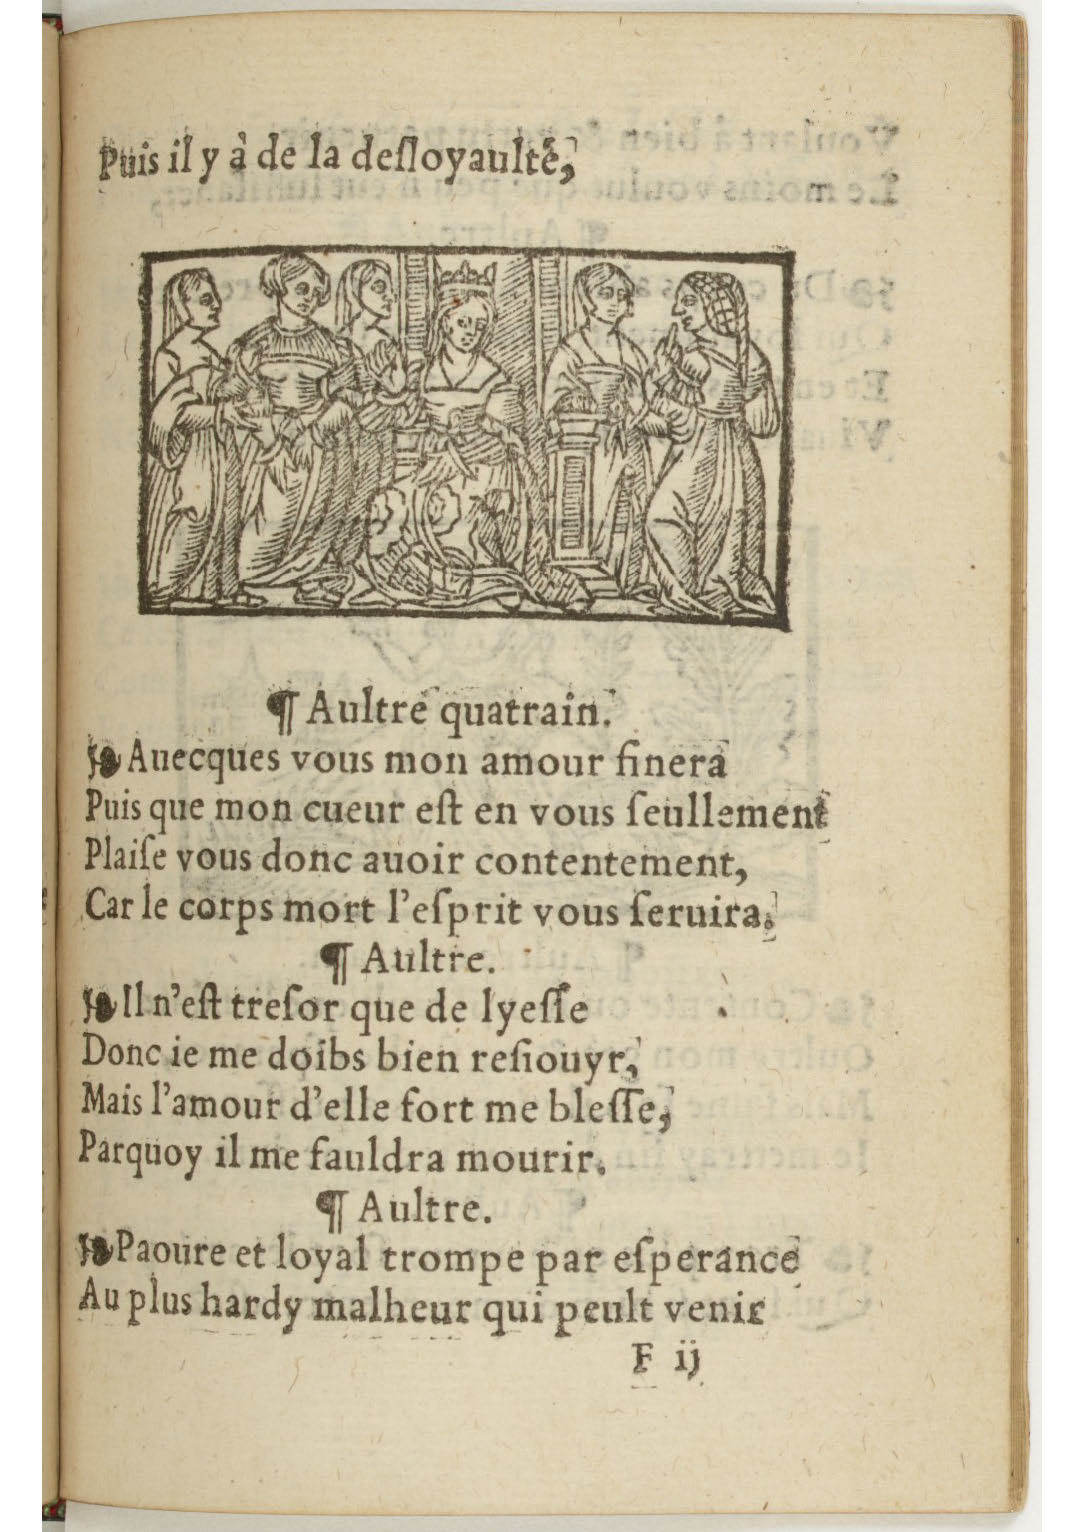 Puis il y à de la desloyaulté,
¶ Aultre quatrain.
❧ Auecques vous mon amour finera
Puis que mon cueur eſt en vous ſeullement
Plaiſe vous donc auoir contentement,
Car le corps mort l'eſprit vous ſeruira.
¶ Aultre.
❧ Il n'eſt treſor que de lyeſſe
Donc ie me doibs bien reſiouyr,
Mais l'amour d'elle fort me bleſſe,
Parquoy il me fauldra mourir.
¶ Aultre.
❧ Paoure et loyal trompe par eſperance
Au plus hardy malheur qui peult venir
F ij